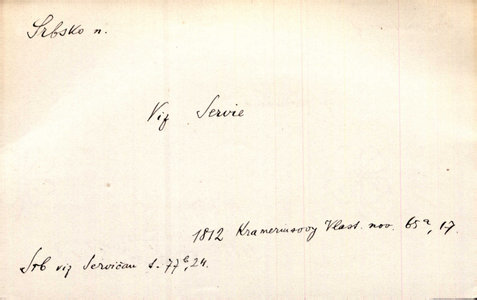 Srbsko n.
Viz Servie
1812 Krameriusovy Vlast. nov. 65a, 17.
Srb viz Servičan s. 77b, 24.